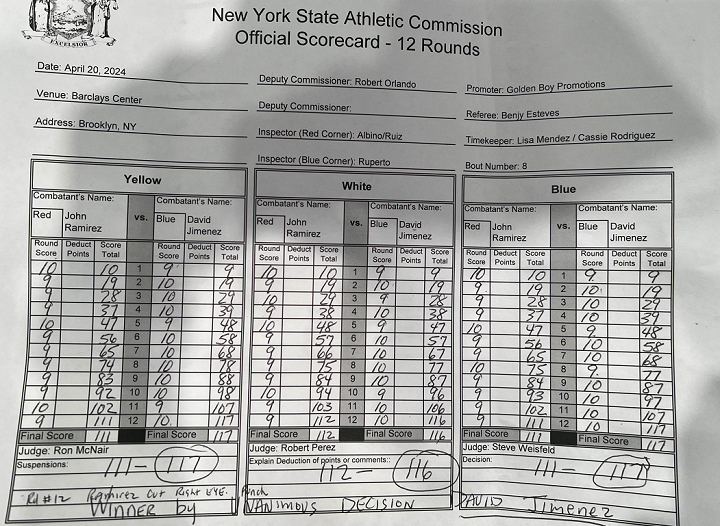 EXCELSIOR
New York State Athletic Commission
Official Scorecard - 12 Rounds
Date: April 20, 2024
Venue: Barclays Center
Address: Brooklyn, NY
Deputy Commissioner: Robert Orlando
Deputy Commissioner:
Inspector (Red Corner): Albino/Ruiz
Inspector (Blue Corner): Ruperto
Promoter: Golden Boy Promotions
Referee: Benjy Esteves
Timekeeper: Lisa Mendez / Cassie Rodriguez
Bout Number: 8
Yellow
Combatant's Name: vs. Combatant's Name:
Red John Ramirez Blue David Jimenez
Round Score Deduct Points Score Total Round Score Deduct Points Score Total
10 10 1 9 9
9 19 2 10 19
9 28 3 10 29
9 37 4 10 39
10 47 5 9 48
9 56 6 10 58
9 65 7 10 68
9 74 8 10 78
9 83 9 10 88
9 92 10 10 98
10 102 11 9 107
9 111 12 10 117
Final Score 111 Final Score 117
Judge: Ron McNair
Suspensions: 111- 117
White
Combatant's Name: vs. Combatant's Name:
Red John Ramirez Blue David Jimenez
Round Score Deduct Points Score Total Round Score Deduct Points Score Total
10 10 1 9 9
9 19 2 10 19
10 29 3 9 28
9 38 4 10 38
10 48 5 9 47
9 57 6 10 57
9 66 7 10 67
9 75 8 10 77
9 84 9 10 87
10 94 10 9 96
9 103 11 10 106
9 112 12 10 116
Final Score 112 Final Score 116
Judge: Robert Perez
Explain Deduction of points or comments::
112- 116
Blue
Combatant's Name: vs. Combatant's Name:
Red John Ramirez Blue David Jimenez
Round Score Deduct Points Score Total Round Score Deduct Points Score Total
10 10 1 9 9
9 19 2 10 19
9 28 3 10 29
9 37 4 10 39
10 47 5 9 48
9 56 6 10 58
9 65 7 10 68
10 75 8 9 77
9 84 9 10 87
9 93 10 10 97
9 102 11 10 107
9 111 12 10 117
Final Score 111 Final Score 117
Judge: Steve Weisfeld
Decision: 111- 117
Rd #12 Ramirez Cut Right EYE. Punch
WINNER by UNANIMOUS DECISION DAVID Jimenez